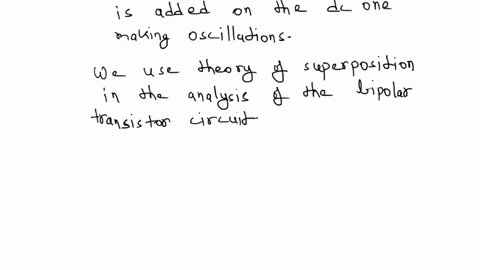 is added on the dc one
making oscillations.
We use theory of superposition
in the analysis of the bipolar
transistor circuit